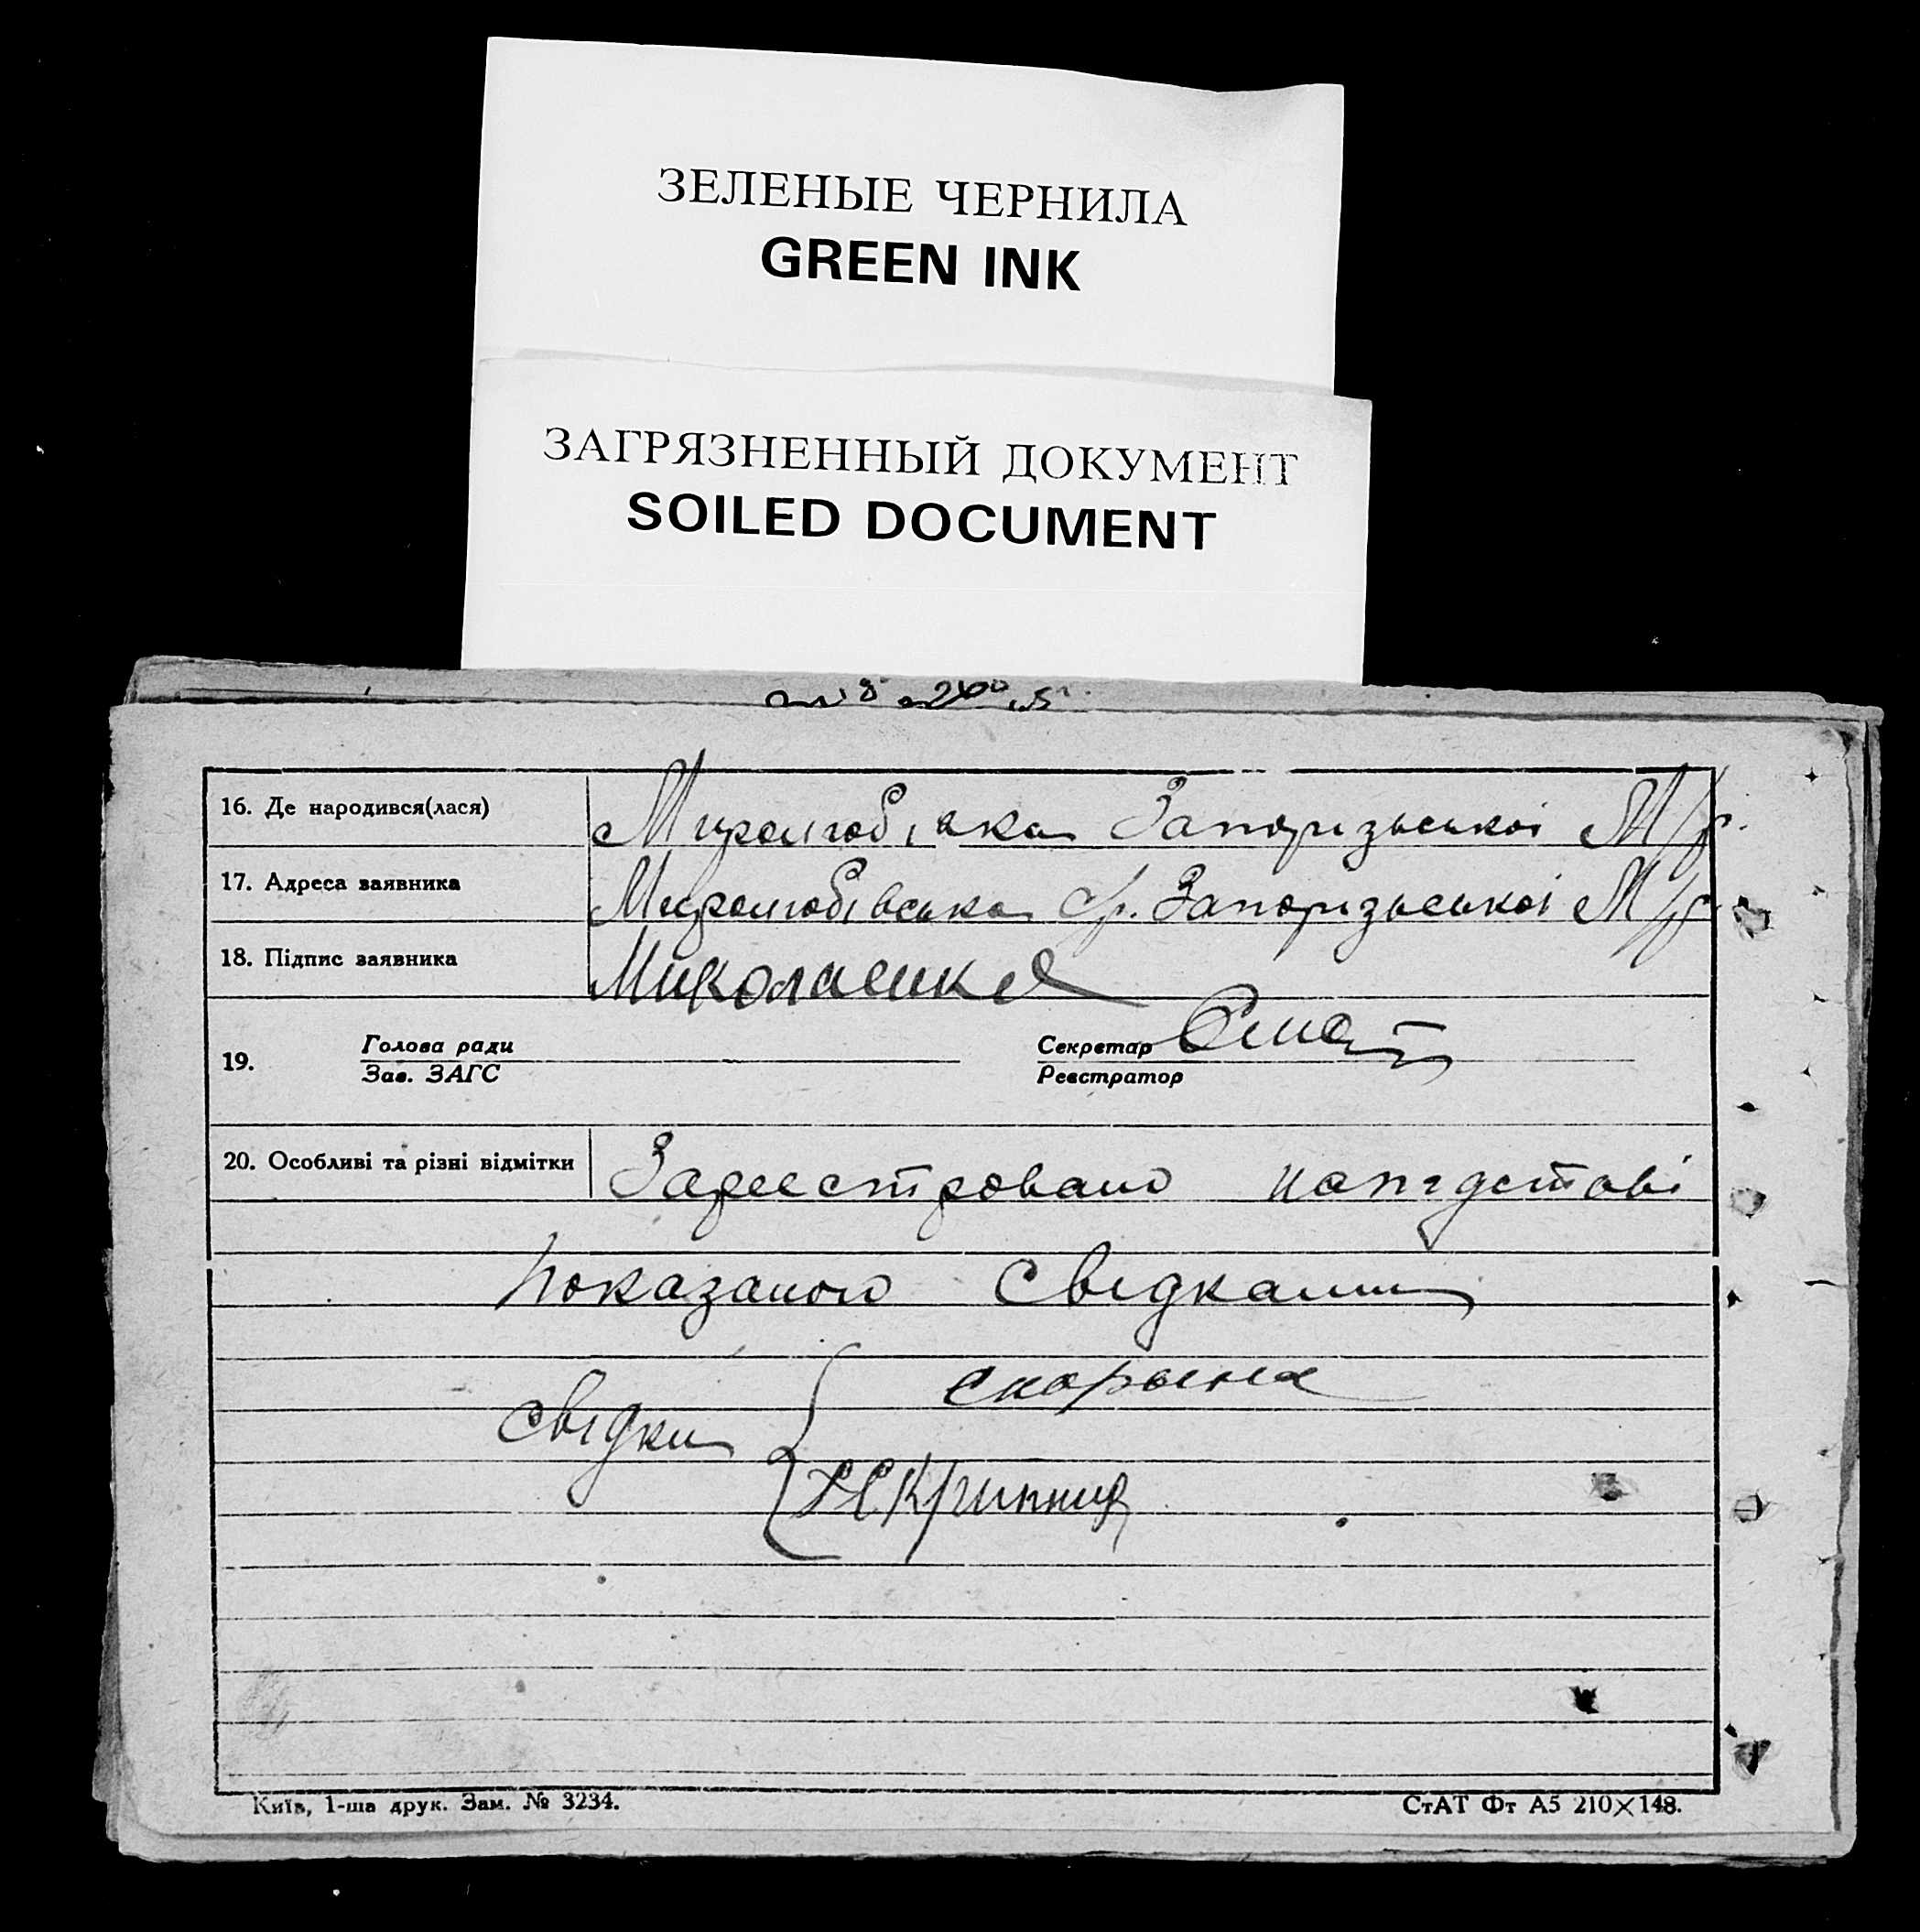 ЗЕЛЕНЫЕ ЧЕРНИЛА
GREEN INK
ЗАГРЯЗНЕННЫЙ ДОКУМЕНТ
SOILED DOCUMENT
16. Де народився(лася) Миролюбівка Запорізької М/р.
17. Адреса заявника Миролюбівська с/р. Запорізької М/р
18. Підпис заявника
19. Голова ради
Зав. ЗАГС
Секретар
Реєстратор
20. Особливі та різні відмітки Зареєстровано напідставі
показаного свідками
свідки
Київ, 1-ша друк. Зам. № 3234.
СтАТ Фт А5 210×148.